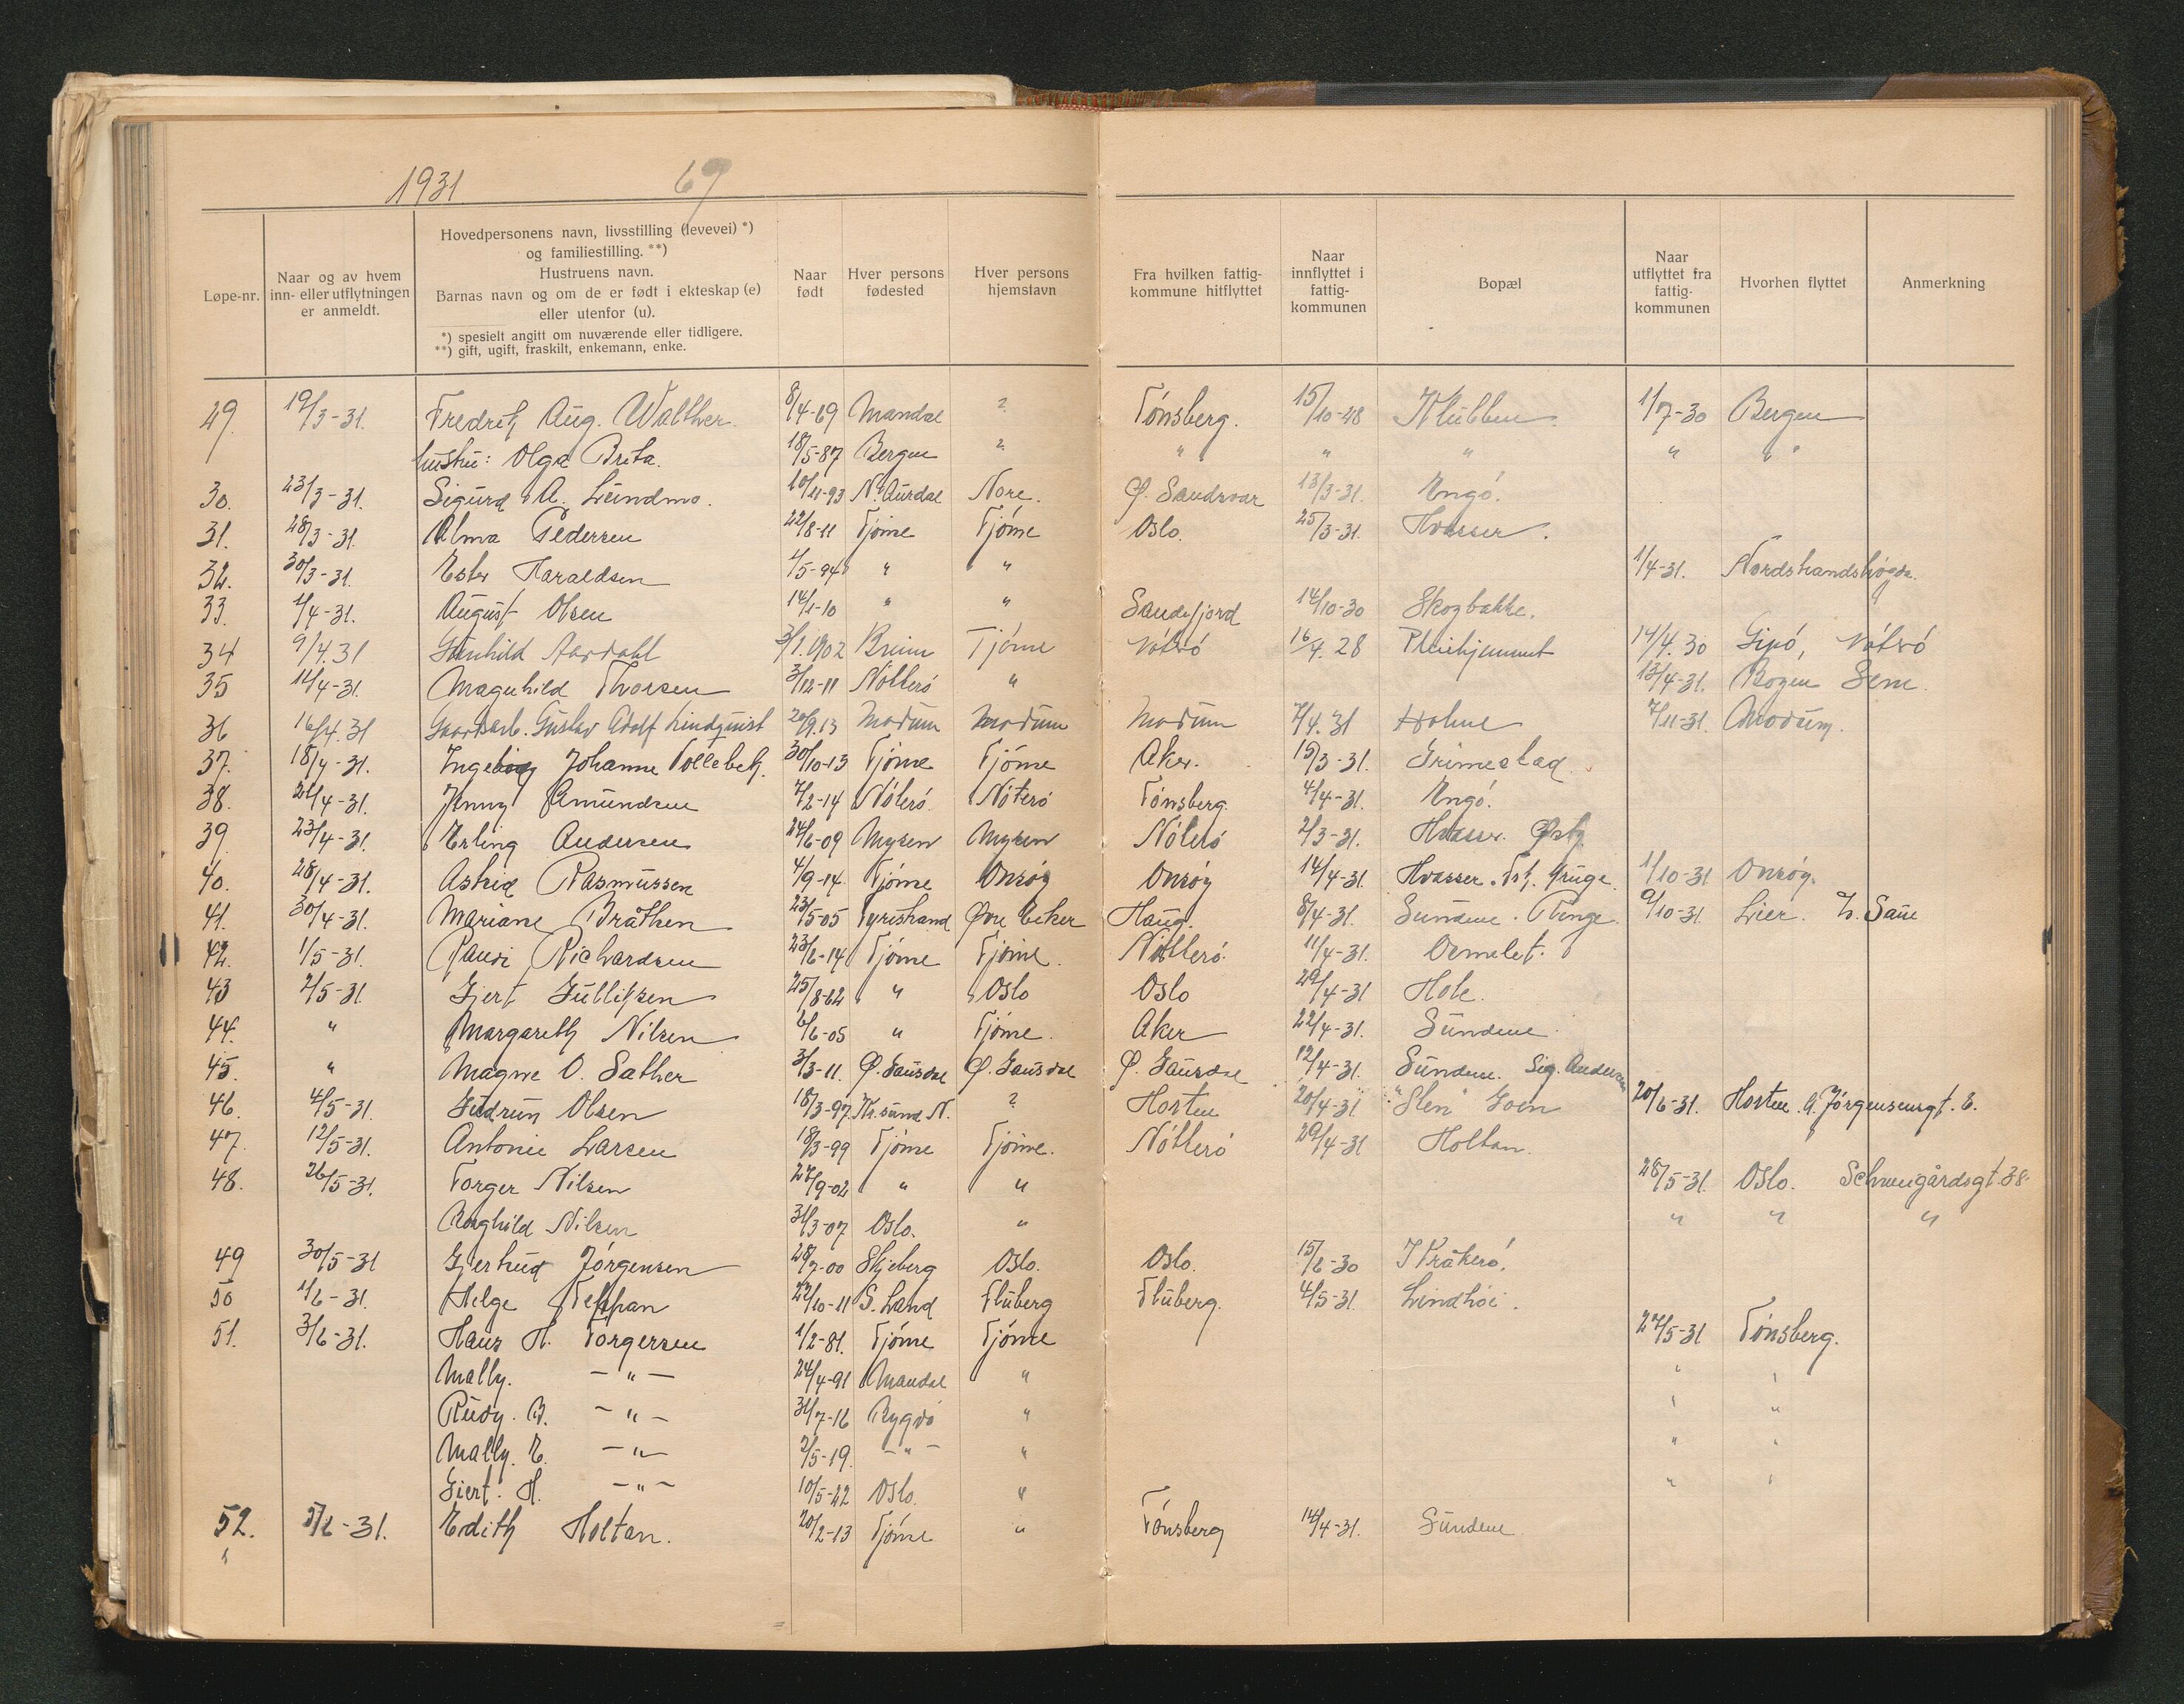 1931 69
Løpe-nr.
Naar og av hvem
inn- eller utflytningen
er anmeldt.
Hovedpersonens navn, livsstilling (levevei) *)
og familiestilling. **)
Hustruens navn.
Barnas navn og om de er født i ekteskap (e)
eller utenfor (u).
*) spesielt angitt om nuværende eller tidligere.
**) gift, ugift, fraskilt, enkemann, enke.
Naar
født
Hver persons
fødested
Hver persons
hjemstavn
Fra hvilken fattig-
kommune hitflyttet
Naar
innflyttet i
fattig-
kommunen
Bopæl
Naar
utflyttet fra
fattig-
kommunen
Hvorhen flyttet
Anmerkning
29. 19/3-31. Fredrik Aug. Walther. 8/4-69 Mandal ? Tönsberg. 15/10-28 Klubben. 1/7-30 Bergen
hustru: Olga Brita. 18/5-87 Bergen ? " " " " " "
30. 23/3-31. Sigurd A. Lundmo. 10/11-93 N. Aurdal Nore. Ø. Sandsvær 13/3-31. Engö.
31. 28/3-31. Alma Pedersen 22/8-11 Tjöme Tjöme Oslo. 25/3-31. Hvasser.
32. 30/3-31. Ester Haraldsen 1/5-94 " " 1/4-31. Nordstrandshögda.
33. 1/4-31. August Olsen 14/1-10 " " Sandefjord 14/10-30 Skogbakke.
34 9/4.31 Gunhild Aardahl 3/1.1902 Breim Tjöme Nöteö 16/4.28 Pleiehjemmet 14/4.30 Gipö, Nöterö
35 11/4-31. Magnhild Thorsen 3/12-11 Nötterö " 13/4-31. Bogen Sem.
36 16/4.31 Gaardsarb. Gustav Adolf Lindquist 20/9.13 Modum Modum Modum 7/4.31 Holme 7/11-31. Modum.
37. 18/4-31. Ingeborg Johanne Tollebek. 30/10-13 Tjöme Tjöme Aker. 15/3-31. Grimestad.
38. 21/4-31. Jenny Amundsen 7/2-14 Nöterö. Nöterö Tönsberg. 4/4-31. Engö.
39. 23/4-31. Erling Andersen 24/6-09 Mysen Mysen Nöterö 2/3-31. Hvasser. Østg
40. 28/4-31. Astrid Rasmussen 4/9-14. Tjöme Onsöy Onsöy 14/4-31. Hvasser. 1/10-31 Onsöy.
41. 30/4-31. Mariane Bråthen 23/5-05 Tyristrand Øvre Eeker Haug. 8/4-31. Sundene. Ringe. 9/10-31. Lier.
42. 1/5-31. Randi Richardsen 23/6-14 Tjöme Tjöme. Nötterö. 11/4-31. Ormelet.
43 2/5-31. Gjert Gullicksen 25/8-62 " Oslo Oslo 29/4-31 Hole.
44. " Margareth Nilsen 6/6-05 " Tjöme. Aker 22/4-31. Sundene.
45. " Magne O. Sather 3/3-11. Ø. Gausdal Ø. Gausdal Ø. Gausdal 12/4-31. Sundene. Sig. Andersen
46. 4/5-31. Gudrun Olsen 18/3-97. Kr. sund N. ? Horten 20/4-31 "Sten" Goen 20/6-31. Horten. A. Jörgensensgt. 8.
47. 12/5-31. Antonie Larsen 18/3-99 Tjöme Tjöme. Nötterö 29/4-31 Holtan.
48. 26/5-31. Torger Nilsen 27/9-02 " " 28/5-31. Oslo. Schweigårdsgt. 38.
Ragnhild Nilsen 31/3-07 Oslo. " " " "
49 30/5-31 Gjertrud Jörgensen 28/7-00 Skjeberg Oslo. Oslo. 15/6-30 Kråkerö.
50 1/6-31. Helge 22/10-11 S. Land Fluberg Fluberg. 4/5-31. Lindhöi.
51. 3/6-31. Hans H. Torgersen 1/2-81. Tjöme Tjöme 27/5-31 Tönsberg.
Mally. -"- 24/4-91 Mandal " " "
Rudy. B. -"- 31/7-16 Bygdö " " "
Mally. E. -"- 2/5-19. -"- " " "
Giert. H. -"- 10/5-22 Oslo. " " "
52. 5/6-31. Edith Holtan. 20/2-13 Tjöme " Tönsberg 14/4-31. Sundene.